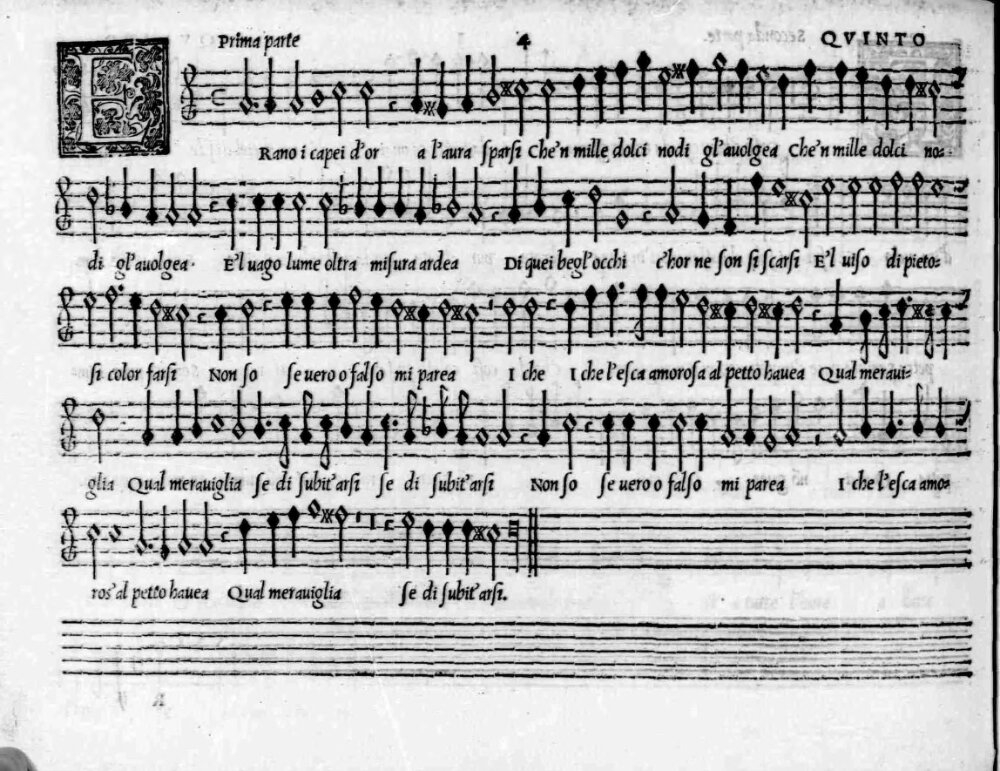 Prima parte 4 QVINTO
ERano i capei d'or a l'aura ſparſi Che'n mille dolci nodi gl'auolgea Che'n mille dolci no-
di gl'auolgea. E'l uago lume oltra miſura ardea Di quei begl'occhi c'hor ne ſon ſi ſcarſi E'l uiſo di pieto-
ſi color farſi Non ſo ſe uero o falſo mi parea I che I che l'eſca amoroſa al petto hauea Qual meraui-
glia Qual merauiglia ſe di ſubit'arſi ſe di ſubit'arſi Non ſo ſe uero o falſo mi parea I che l'eſca amo-
roſ'al petto hauea Qual merauiglia ſe di ſubit'arſi.